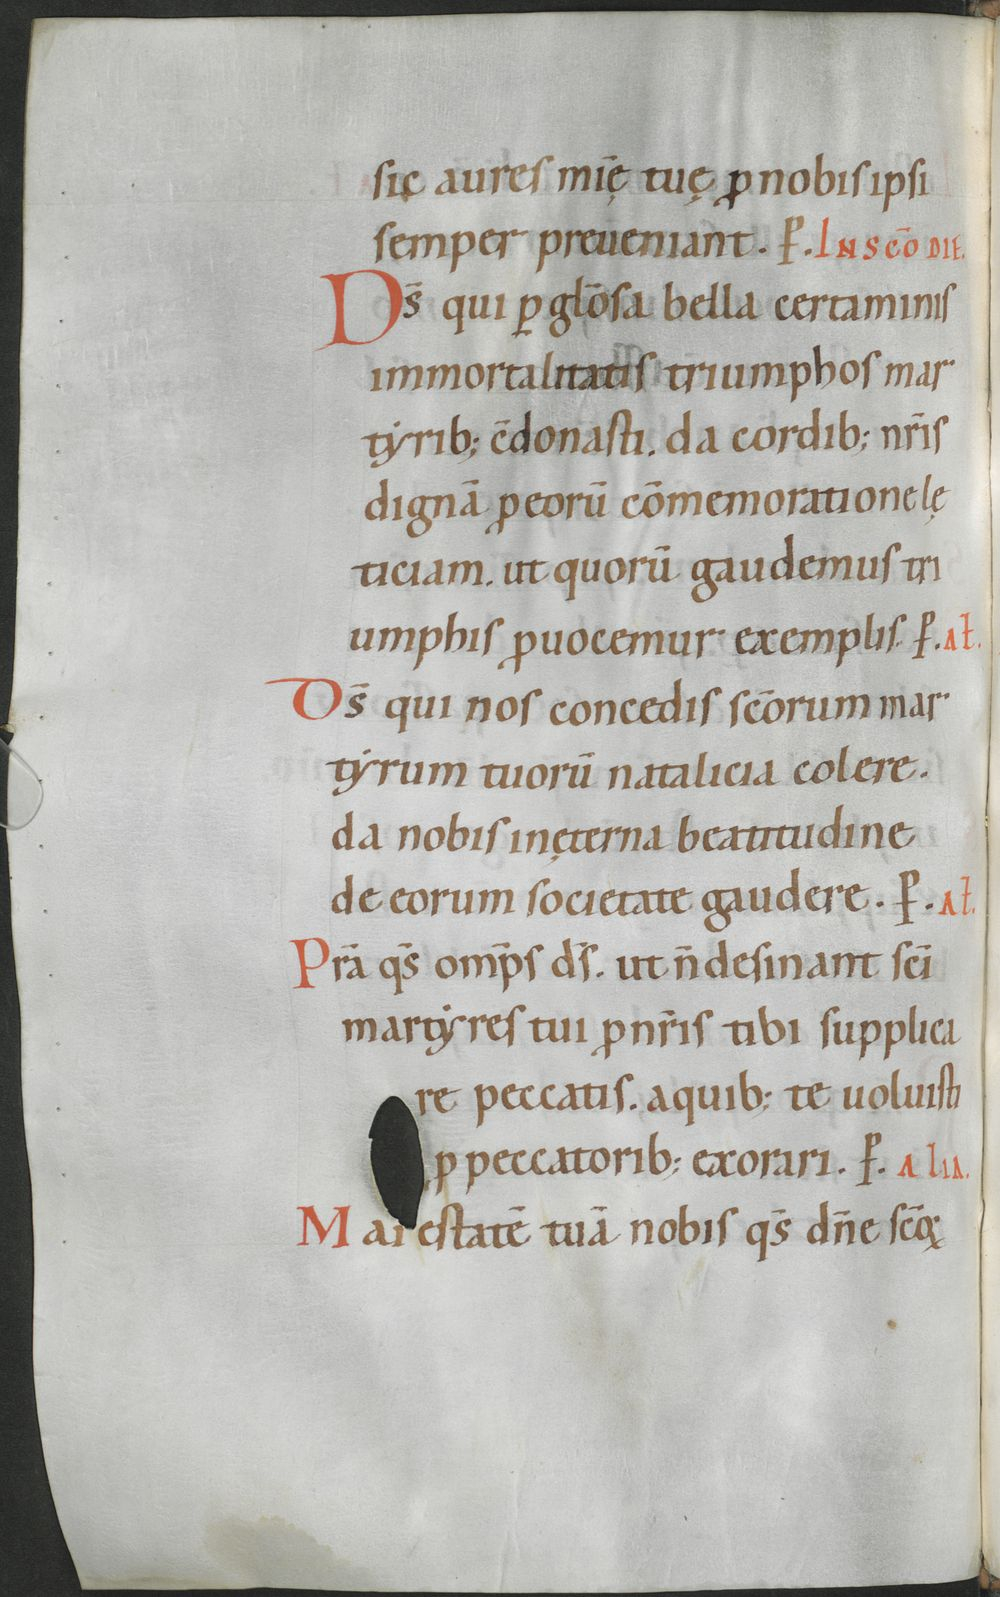 sic aures mīę tuę ꝓ nobis ipsi
semper preueniant. P̄. IN SCŌ DIE.
Ds̄ qui ꝑ glōsa bella certaminis
immortalitatis triumphos mar
tẏrib; c̄donasti. da cordib; nr̄is
dignā ꝓ eorū cōmemoratione lę
ticiam. ut quorū gaudemus tri
umphis ꝓuocemur exemplis. P̄. Aꝉ.
Ds̄ qui nos concedis scōrum mar
tẏrum tuorū natalicia colere.
da nobis in ęterna beatitudine
de eorum societate gaudere. P̄. Aꝉ.
Prā qs̄ omp̄s ds̄. ut n̄ desinant sc̄i
martẏres tui ꝓ nr̄is tibi supplica
re peccatis. a quib; te uoluisti
ꝓ peccatorib; exorari. P̄. ALIA.
Maiestatē tuā nobis qs̄ dn̄e sc̄oꝝ